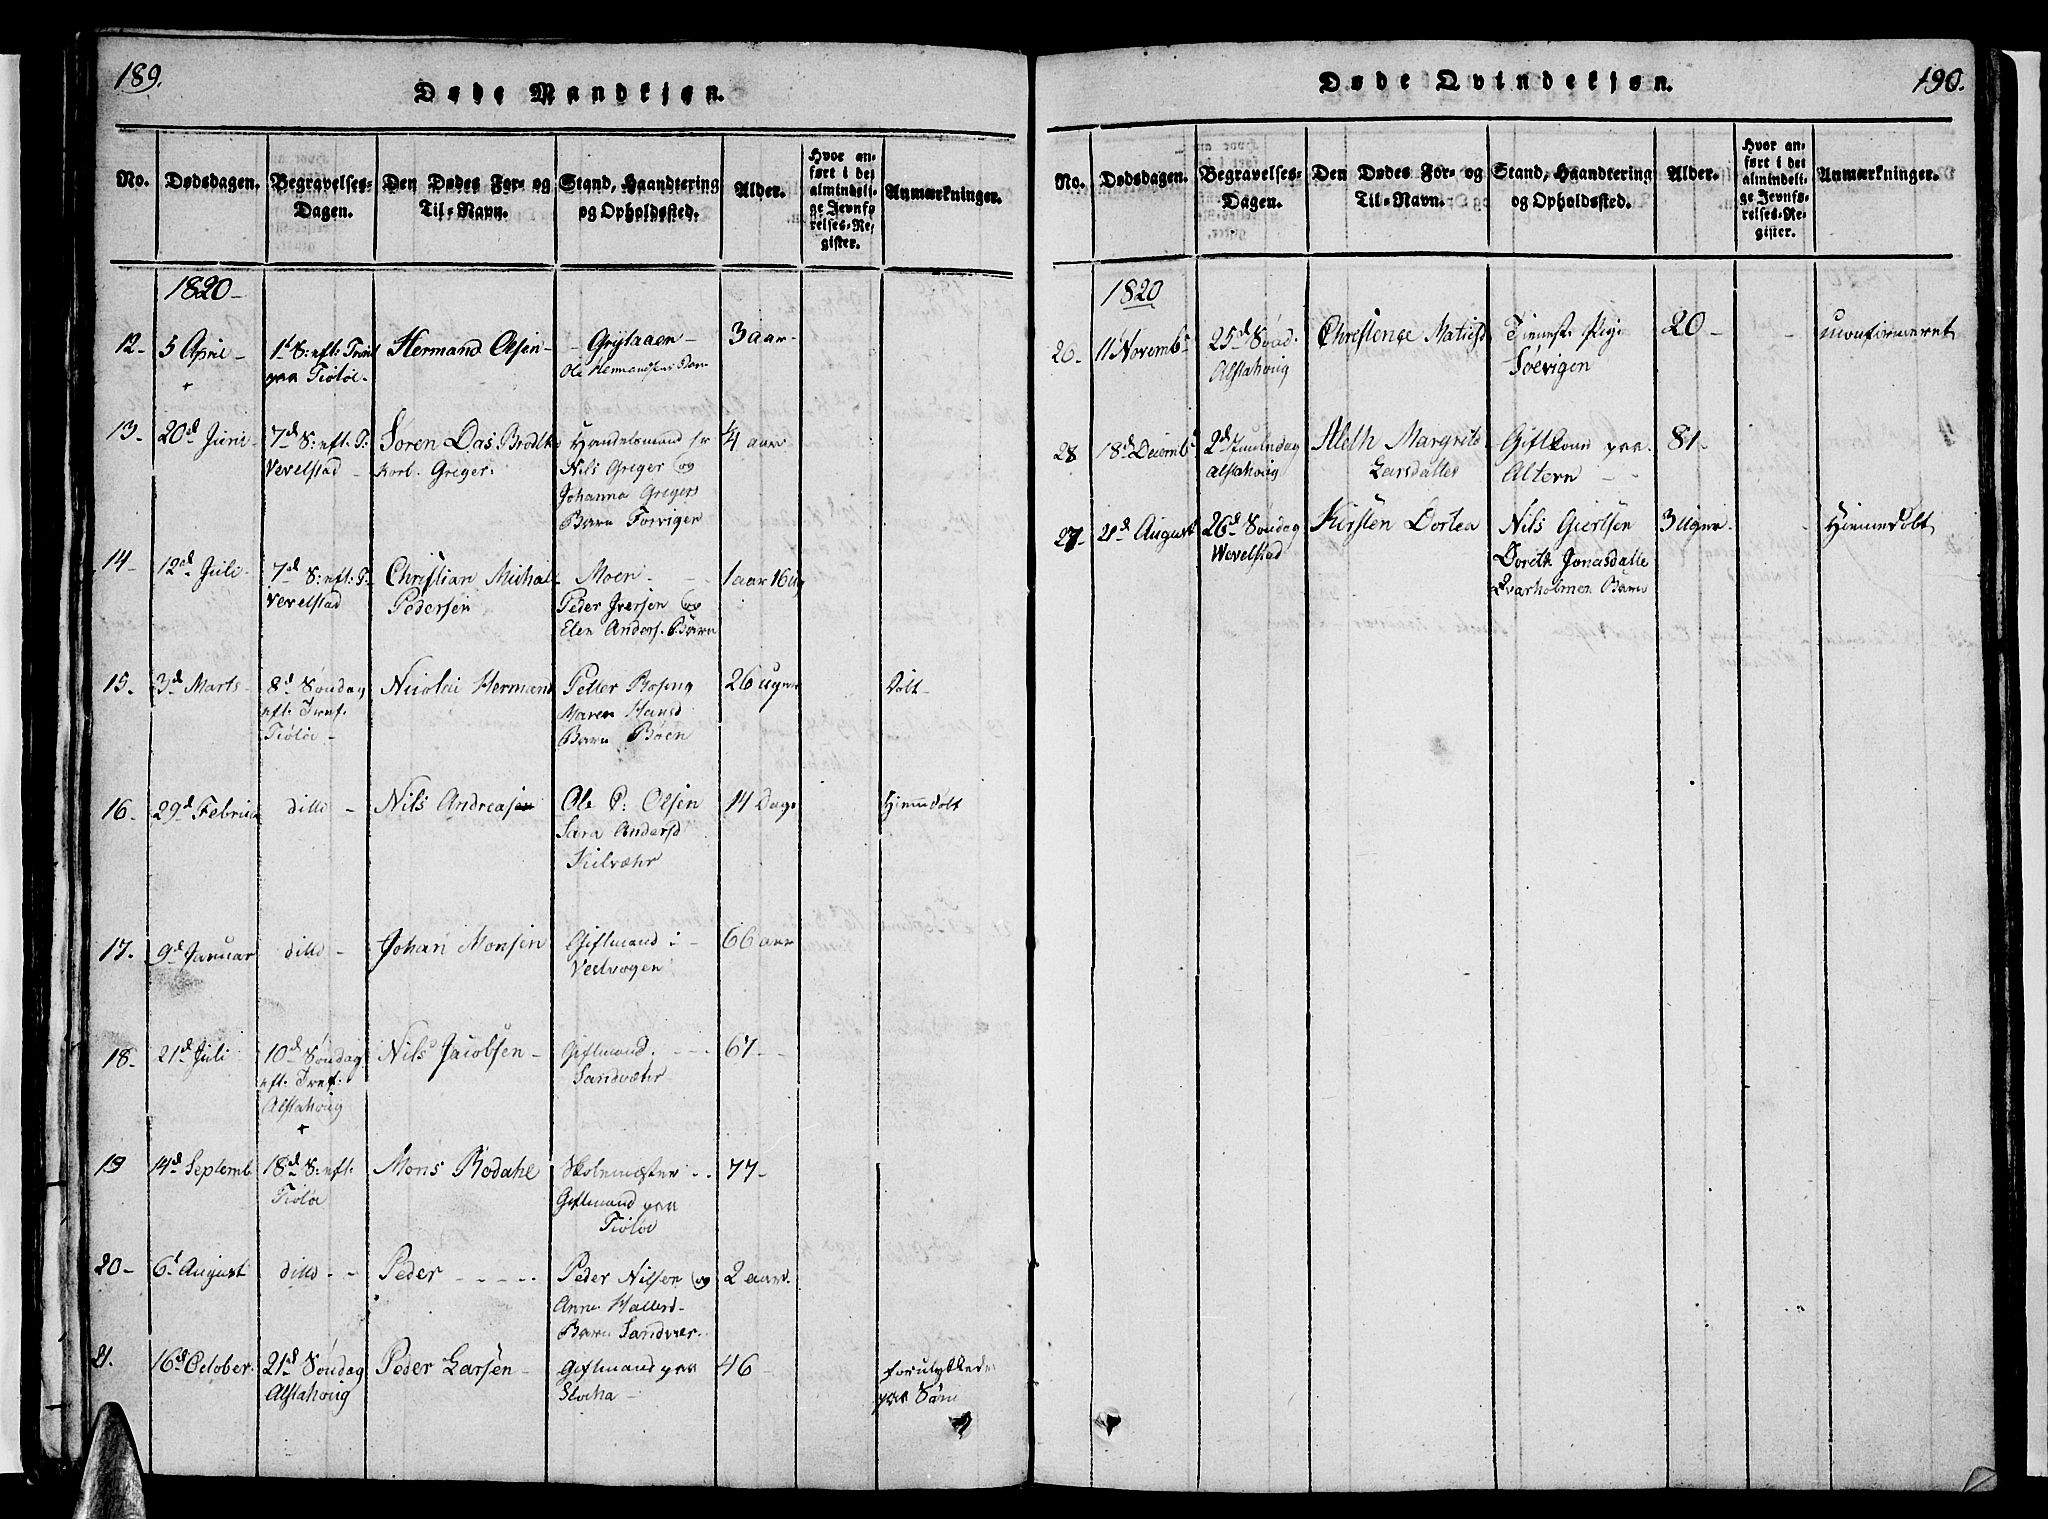 189.
Døde Mandkjøn.
No.
Dødsdagen.
Begravelses-
Dagen.
Den Dødes For- og
Til-Navn.
Stand, Haandtering
og Opholdssted.
Alder.
Hvor an-
ført i det
almindeli-
ge Jevnfø-
relses-Re-
gister.
Anmærkninger.
1820
12-
5 April
1t S: eft: Trint
paa Tiøtøe-
Hermand Olsen
Grytaaen
Ole Hermandsens Barn
3 aar
13-
20d Juni
7d S: eft: T:
Vevelstad
Søren Das
Greger
Handelsmand Hr
Nils Greger og
Johanna Gregers
Barn Forvigen
4 aar
14-
12d Juli
7d S: eft: T:
Vevelstad
Christian Michal
Pedersen
Moen
Peder Iversen og
Elen Anders. Barn
1 aar 16 ug
15.
3d Marts
8d Søndag
eft: Tref.
Tiøtøe
Nicolai Hermand
Petter Rosing
Maren Hansd
Barn Bøen
26 uger
Døbt
16.
29d Februar
ditto
Nils Andreasen
Ole P: Olsen
Sara Andersd
Skilvæhr
14 Dage
Hiemmedøbt
17.
9d Januar
ditto
Johan Monsen
Giftmand i
Vestvogen
66 aar
18-
21d Juli
10d Søndag
eft: Tref.
Alstahoug
Nils Jacobsen
Giftmand
Sandvæhr
67
19
14d Septemb
18d S: eft:
Tiøtøe
Mons Rodahl
Skolemester
Giftmand paa
Tiøtøe
77-
20-
6t August
ditto
Peder
Peder Nilsen og
Anne Hallesd-
Barn Sandvær.
2 aar
21.
16d October
21d Søndag
Alstahoug
Peder Larsen
Giftmand paa
46
forulykkede
paa Søen
190.
Døde Qvindekjøn.
No.
Dødsdagen.
Begravelses-
Dagen.
Den Dødes For- og
Til-Navn.
Stand, Haandtering
og Opholdssted.
Alder.
Hvor an-
ført i det
almindeli-
ge Jevnfø-
relses-Re-
gister.
Anmærkninger.
1820
26-
11 Novemb.
25d Sønd.
Alstahoug
Christense Matisd
Tieneste Pige
Søevigen
20
uconfirmeret
28
18d Decemb.
2d Juuledag
Alstahoug
Aleth Margrete
Larsdatter
Giftkone paa
Altern
81-
27-
21d August
26d Søndag
Wevelstad
Kirsten Dortea
Nils Giertsen
Doreth Jonasdatte
Qvarholmen Barn
3 uger
Hiemmedøbt